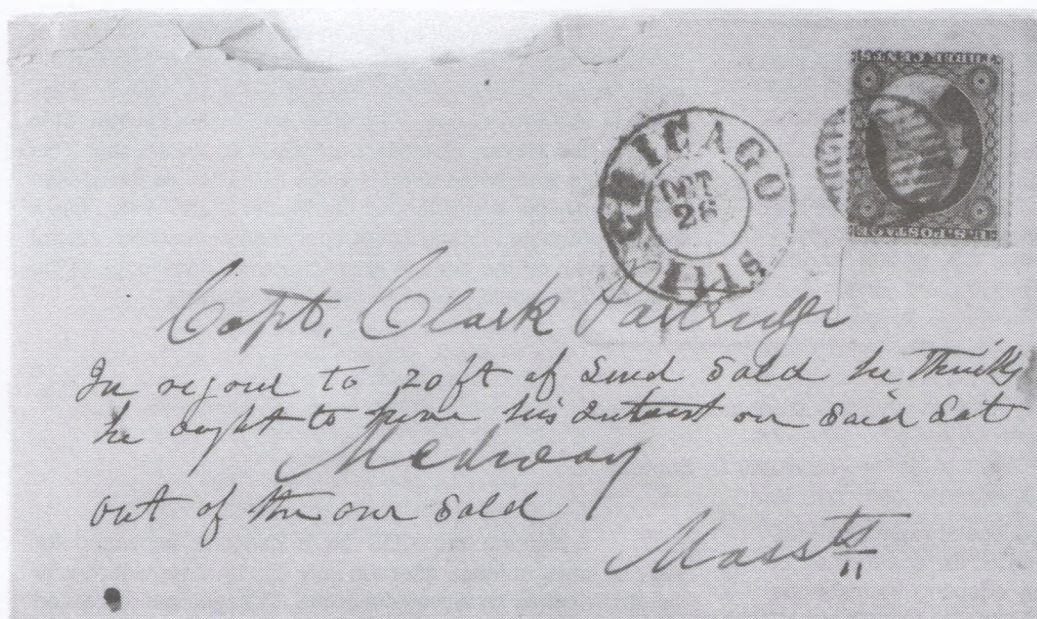 THREE CENTS
U.S. POSTAGE
CHICAGO
OCT
26
ILLS
Capt. Clark Partridge
In regour to 20 ft of Land Sold he thinks
he ought to have his Interest on Said Lot
Medway
out of the one Sold
Massts